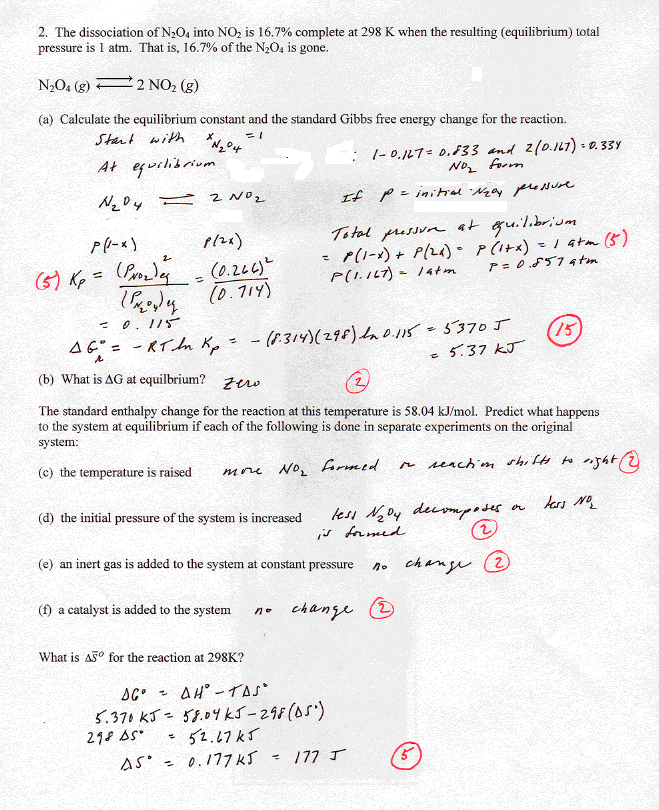 2. The dissociation of N₂O₄ into NO₂ is 16.7% complete at 298 K when the resulting (equilibrium) total
pressure is 1 atm. That is, 16.7% of the N₂O₄ is gone.
N₂O₄ (g) ⇌ 2 NO₂ (g)
(a) Calculate the equilibrium constant and the standard Gibbs free energy change for the reaction.
Start with x_N₂O₄ = 1
At equilibrium : 1-0.167 = 0.833 and 2(0.167) = 0.334
NO₂ form
N₂O₄ ⇌ 2 NO₂ If P = initial N₂O₄ pressure
P(1-x) P(2x) Total pressure at equilibrium
= P(1-x) + P(2x) = P(1+x) = 1 atm (5)
P(1.167) = 1 atm P = 0.857 atm
(5) Kp = (P_NO₂)²eq / (P_N₂O₄)eq = (0.266)² / (0.714)
= 0.115
ΔG°r = -RT ln Kp = -(8.314)(298) ln 0.115 = 5370 J (15)
= 5.37 kJ
(b) What is ΔG at equilbrium? Zero (2)
The standard enthalpy change for the reaction at this temperature is 58.04 kJ/mol. Predict what happens
to the system at equilibrium if each of the following is done in separate experiments on the original
system:
(c) the temperature is raised more NO₂ formed or reaction shifts to right (2)
(d) the initial pressure of the system is increased less N₂O₄ decomposes or less NO₂
is formed (2)
(e) an inert gas is added to the system at constant pressure no change (2)
(f) a catalyst is added to the system no change (2)
What is ΔS̄° for the reaction at 298K?
ΔG° = ΔH° - TΔS°
5.370 kJ = 58.04 kJ - 298(ΔS°)
298 ΔS° = 52.67 kJ
ΔS° = 0.177 kJ = 177 J (5)